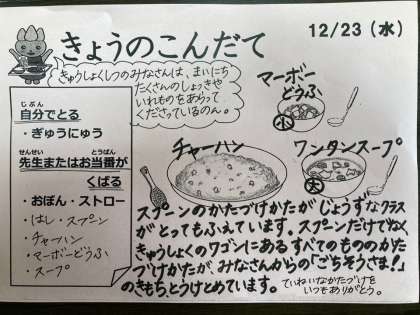 きょうのこんだて
12/23（水）
きゅうしょくしつのみなさんは、まいにち
たくさんのしょっきや
いれものをあらって
くださっているのん。
じぶん
自分でとる
・ぎゅうにゅう
せんせい とうばん
先生またはお当番が
くばる
・おぼん・ストロー
・はし・スプーン
・チャーハン
・マーボーどうふ
・スープ
マーボー
どうふ
小
チャーハン
ワンタンスープ
大
スプーンのかたづけかたが じょうずなクラス
がとってもふえています。スプーンだけでなく
きゅうしょくのワゴンにある すべてのもののかた
づけかたが、みなさんからの「ごちそうさま！」
のきもち、とうけとめています。
ていねいなかたづけを
いつもありがとう。